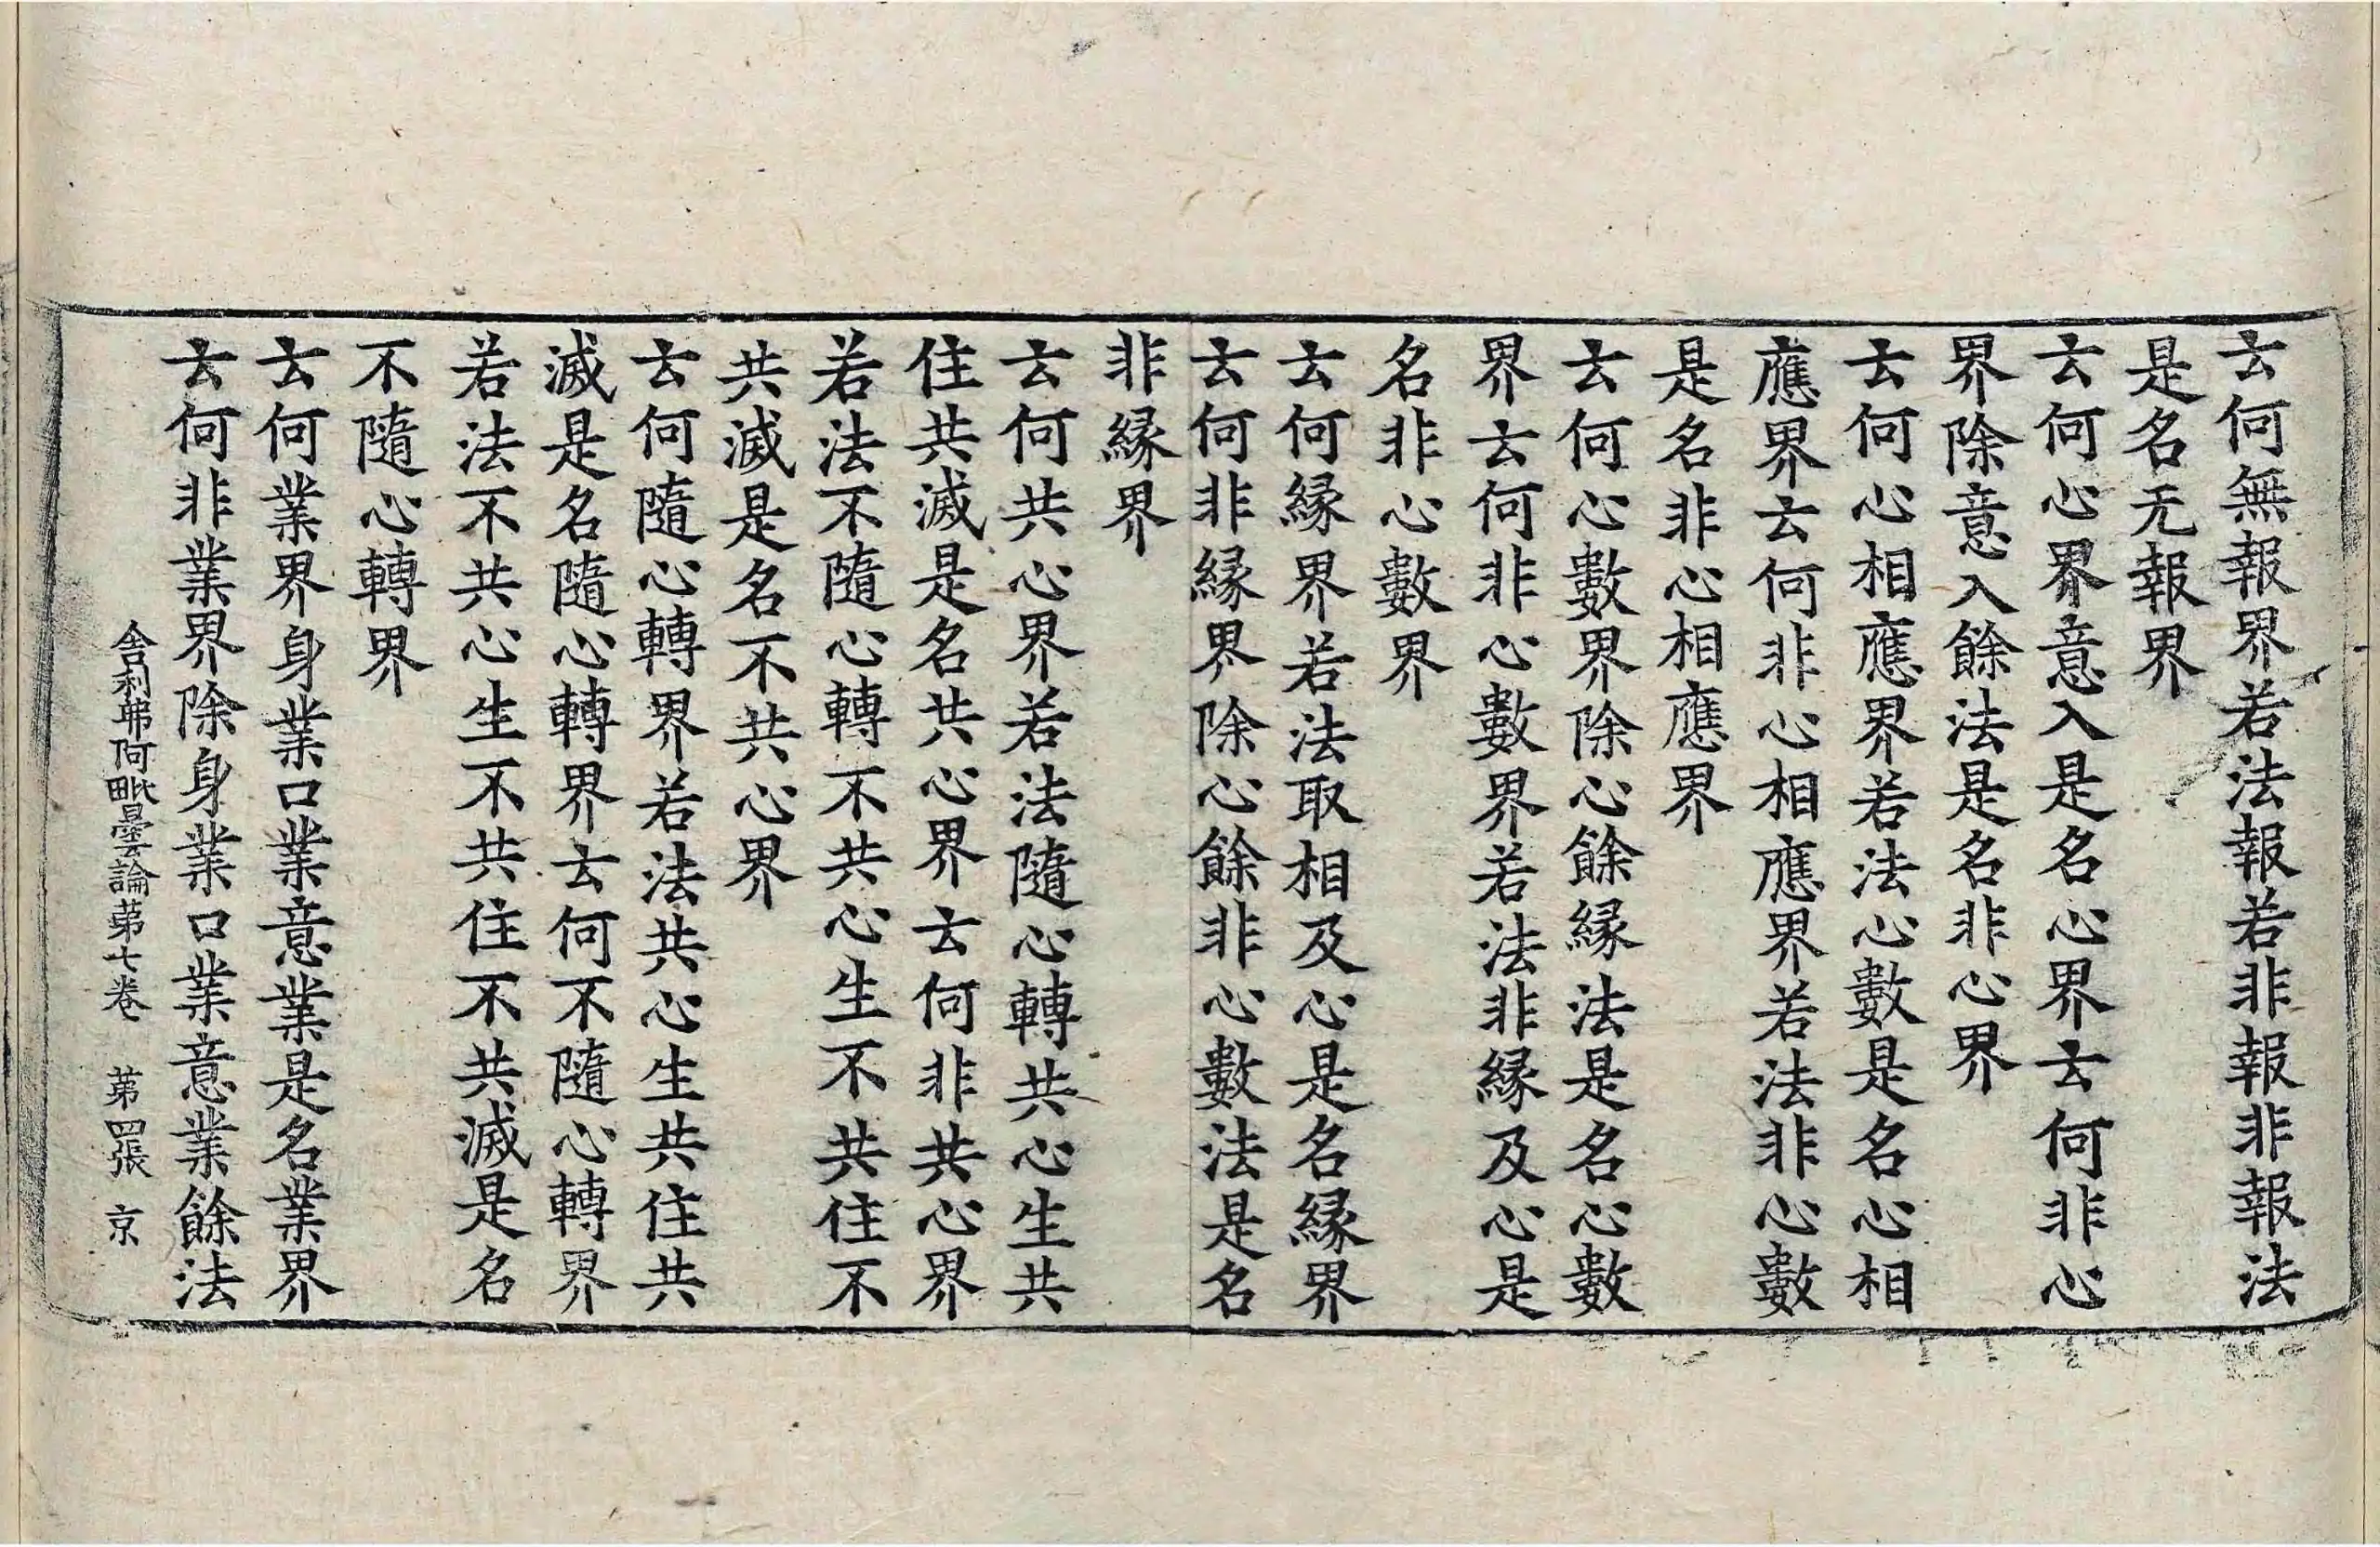 云何無報界若法報若非報非報法
是名无報界
云何心界意入是名心界云何非心
界除意入餘法是名非心界
云何心相應界若法心數是名心相
應界云何非心相應界若法非心數
是名非心相應界
云何心數界除心餘縁法是名心數
界云何非心數界若法非縁及心是
名非心數界
云何縁界若法取相及心是名縁界
云何非縁界除心餘非心數法是名
非縁界
云何共心界若法隨心轉共心生共
住共滅是名共心界云何非共心界
若法不隨心轉不共心生不共住不
共滅是名不共心界
云何隨心轉界若法共心生共住共
滅是名隨心轉界云何不隨心轉界
若法不共心生不共住不共滅是名
不隨心轉界
云何業界身業口業意業是名業界
云何非業界除身業口業意業餘法
舎利弗阿毗曇論苐七卷 苐四張 京